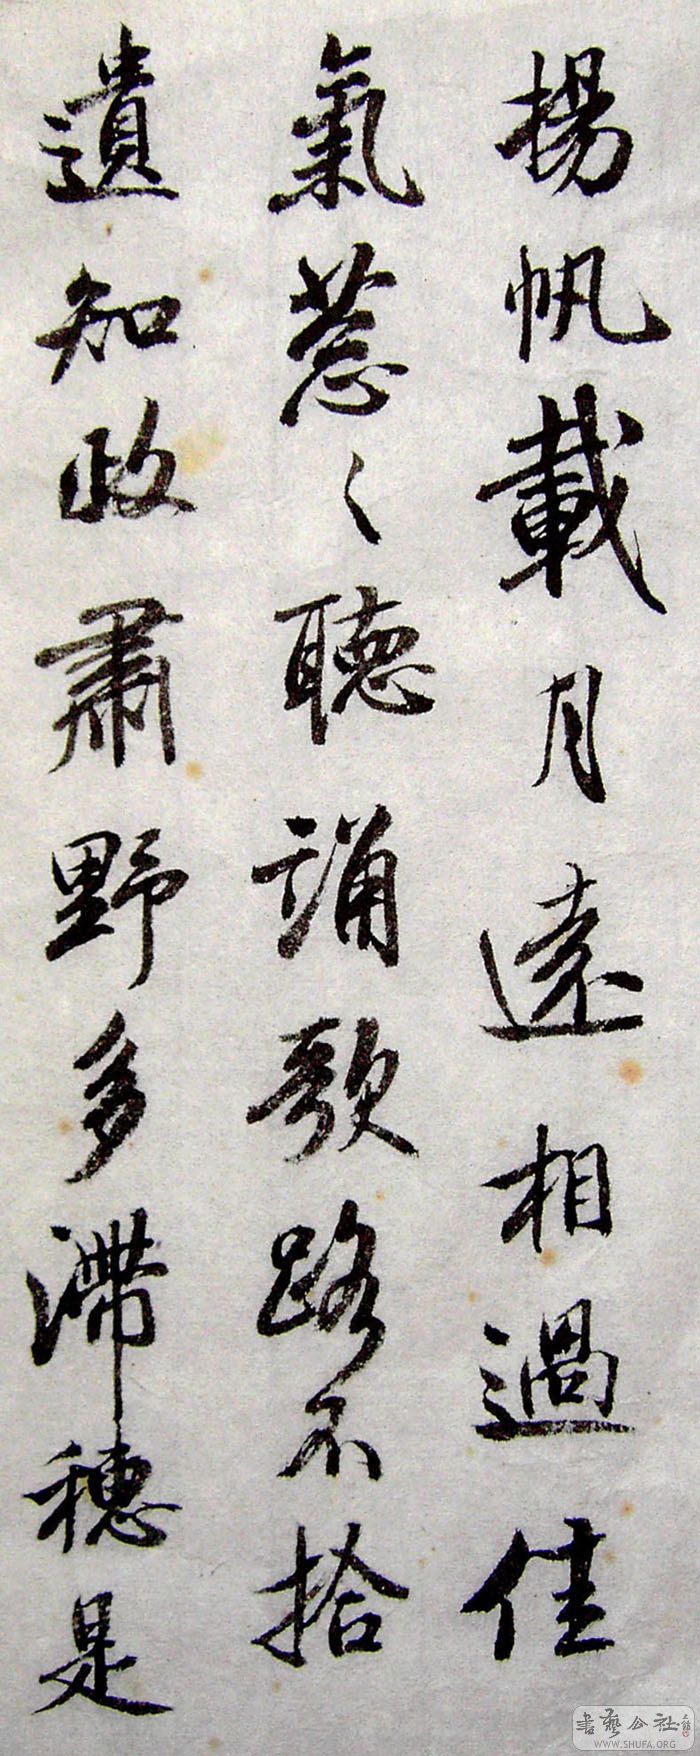 揚帆載月遠相過佳
氣葱〻聽誦歌路不拾
遺知政肅野多滯穗是
書藝公社
WWW.SHUFA.ORG